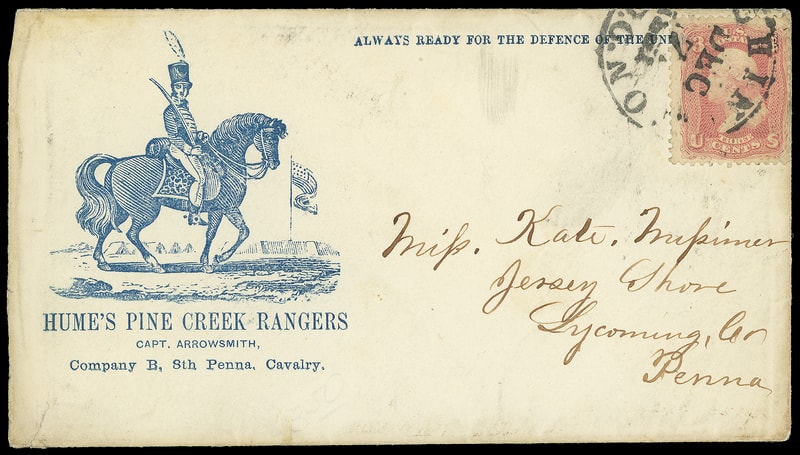 ALWAYS READY FOR THE DEFENCE OF THE UNI
U.S.
DEC
U CENTS S
HUME'S PINE CREEK RANGERS
CAPT. ARROWSMITH,
Company B, 8th Penna. Cavalry.
Miss. Kate. Messimer
Jersey Shore
Lycoming, Co
Penna